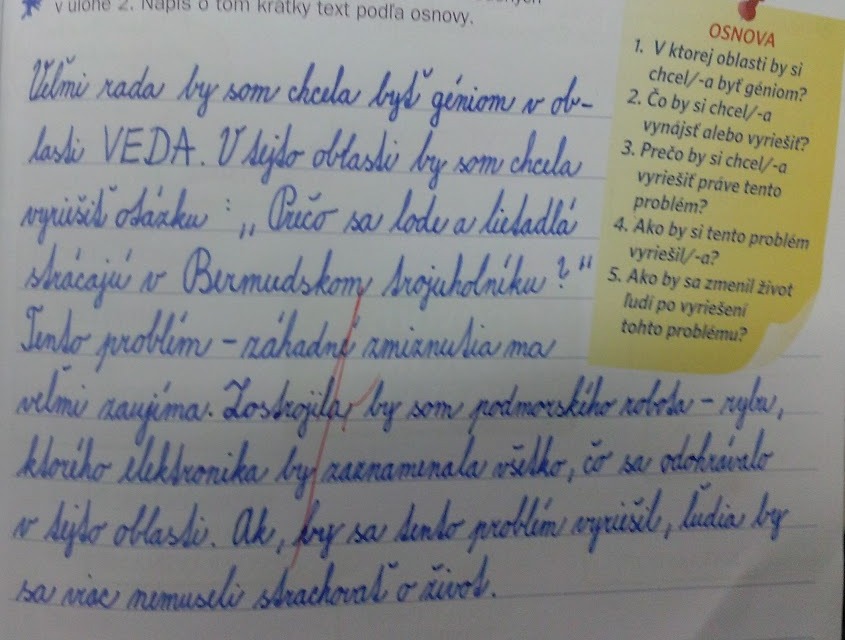 v úlohe 2. Napíš o tom krátky text podľa osnovy.
Veľmi rada by som chcela byť géniom v ob-
lasti VEDA. V tejto oblasti by som chcela
vyriešiť otázku : „ Prečo sa lode a lietadlá
strácajú v Bermudskom trojuholníku ?"
Tento problém – záhadné zmiznutia ma
veľmi zaujíma. Zostrojila by som podmorského robota – rybu,
ktorého elektronika by zaznamenala všetko, čo sa odohrávalo
v tejto oblasti. Ak, by sa tento problém vyriešil, ľudia by
sa viac nemuseli strachovať o život.
OSNOVA
1. V ktorej oblasti by si
chcel/-a byť géniom?
2. Čo by si chcel/-a
vynájsť alebo vyriešiť?
3. Prečo by si chcel/-a
vyriešiť práve tento
problém?
4. Ako by si tento problém
vyriešil/-a?
5. Ako by sa zmenil život
ľudí po vyriešení
tohto problému?